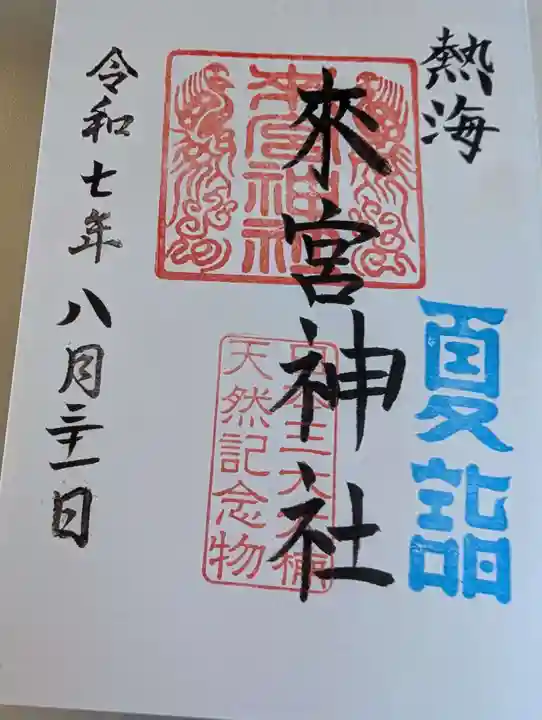 熱海
夏詣
來宮神社
來宮神社
日本三大楠
天然記念物
令和七年八月三十一日